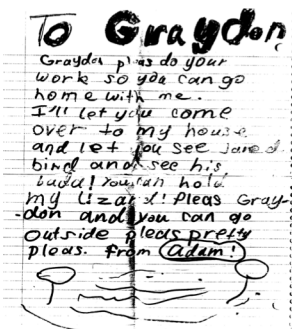 To Graydon
Graydon pleas do your
work so you can go
home with me.
I'll let you come
over to my house
and let you see jared
bird and see his
You can hold
my lizard! Pleas Gray-
-don and you can go
outside pleas pretty
pleas. from Adam!